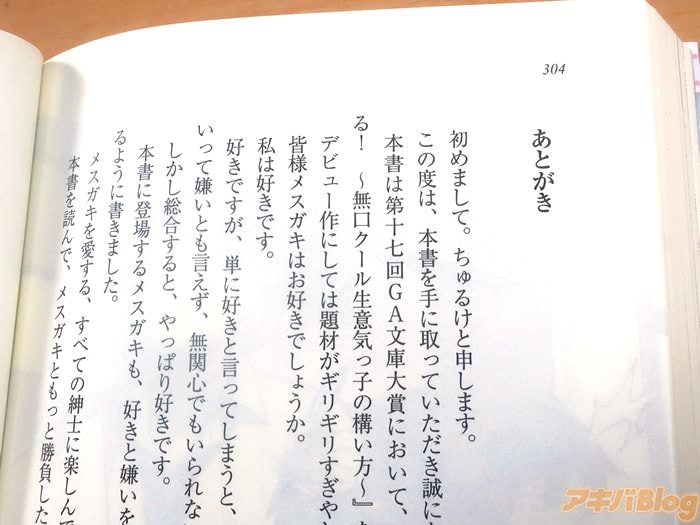 304
あとがき
初めまして。ちゅるけと申します。
この度は、本書を手に取っていただき誠に
本書は第十七回GA文庫大賞において、
る！　～無口クール生意気っ子の構い方～』
デビュー作にしては題材がギリギリすぎや
皆様メスガキはお好きでしょうか。
私は好きです。
好きですが、単に好きと言ってしまうと、
いって嫌いとも言えず、無関心でもいられな
しかし総合すると、やっぱり好きです。
本書に登場するメスガキも、好きと嫌いを
るように書きました。
メスガキを愛する、すべての紳士に楽しんで
本書を読んで、メスガキともっと勝負した
アキバBlog